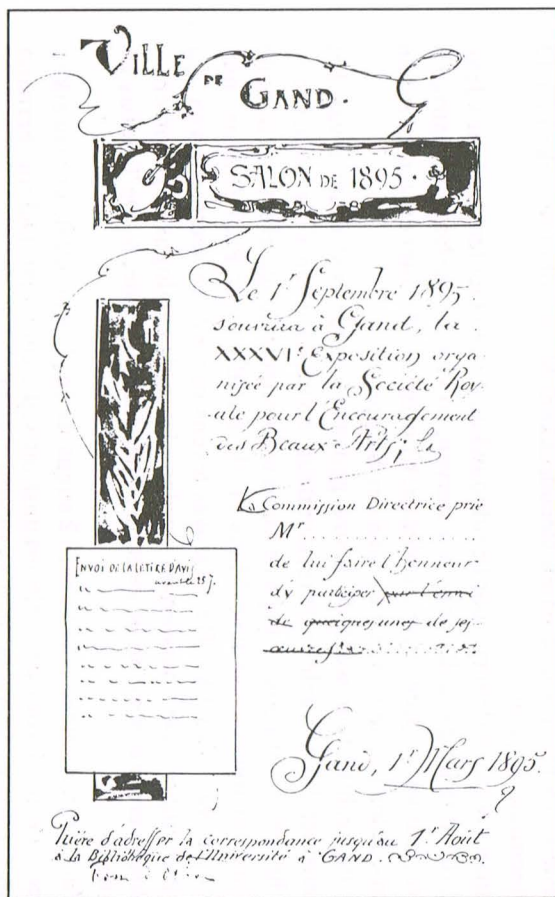 VILLE
DE GAND.
SALON DE 1895.
Le 1r Septembre 1895.
s'ouvrira à Gand, la
XXXVIe Exposition orga-
nisée par la Société Roy-
ale pour l'Encouragement
des Beaux-Arts; la
La Commission Directrice prie
Mr..................
de lui faire l'honneur
d'y participer par l'envoi
de quelques unes de ses
œuvres
ENVOI DE LA LETTRE D'AVIS
avant le 25 J.
Gand, 1r Mars 1895.
Prière d'adresser la correspondance jusqu'au 1r Août
à la Bibliothèque de l'Université à GAND.